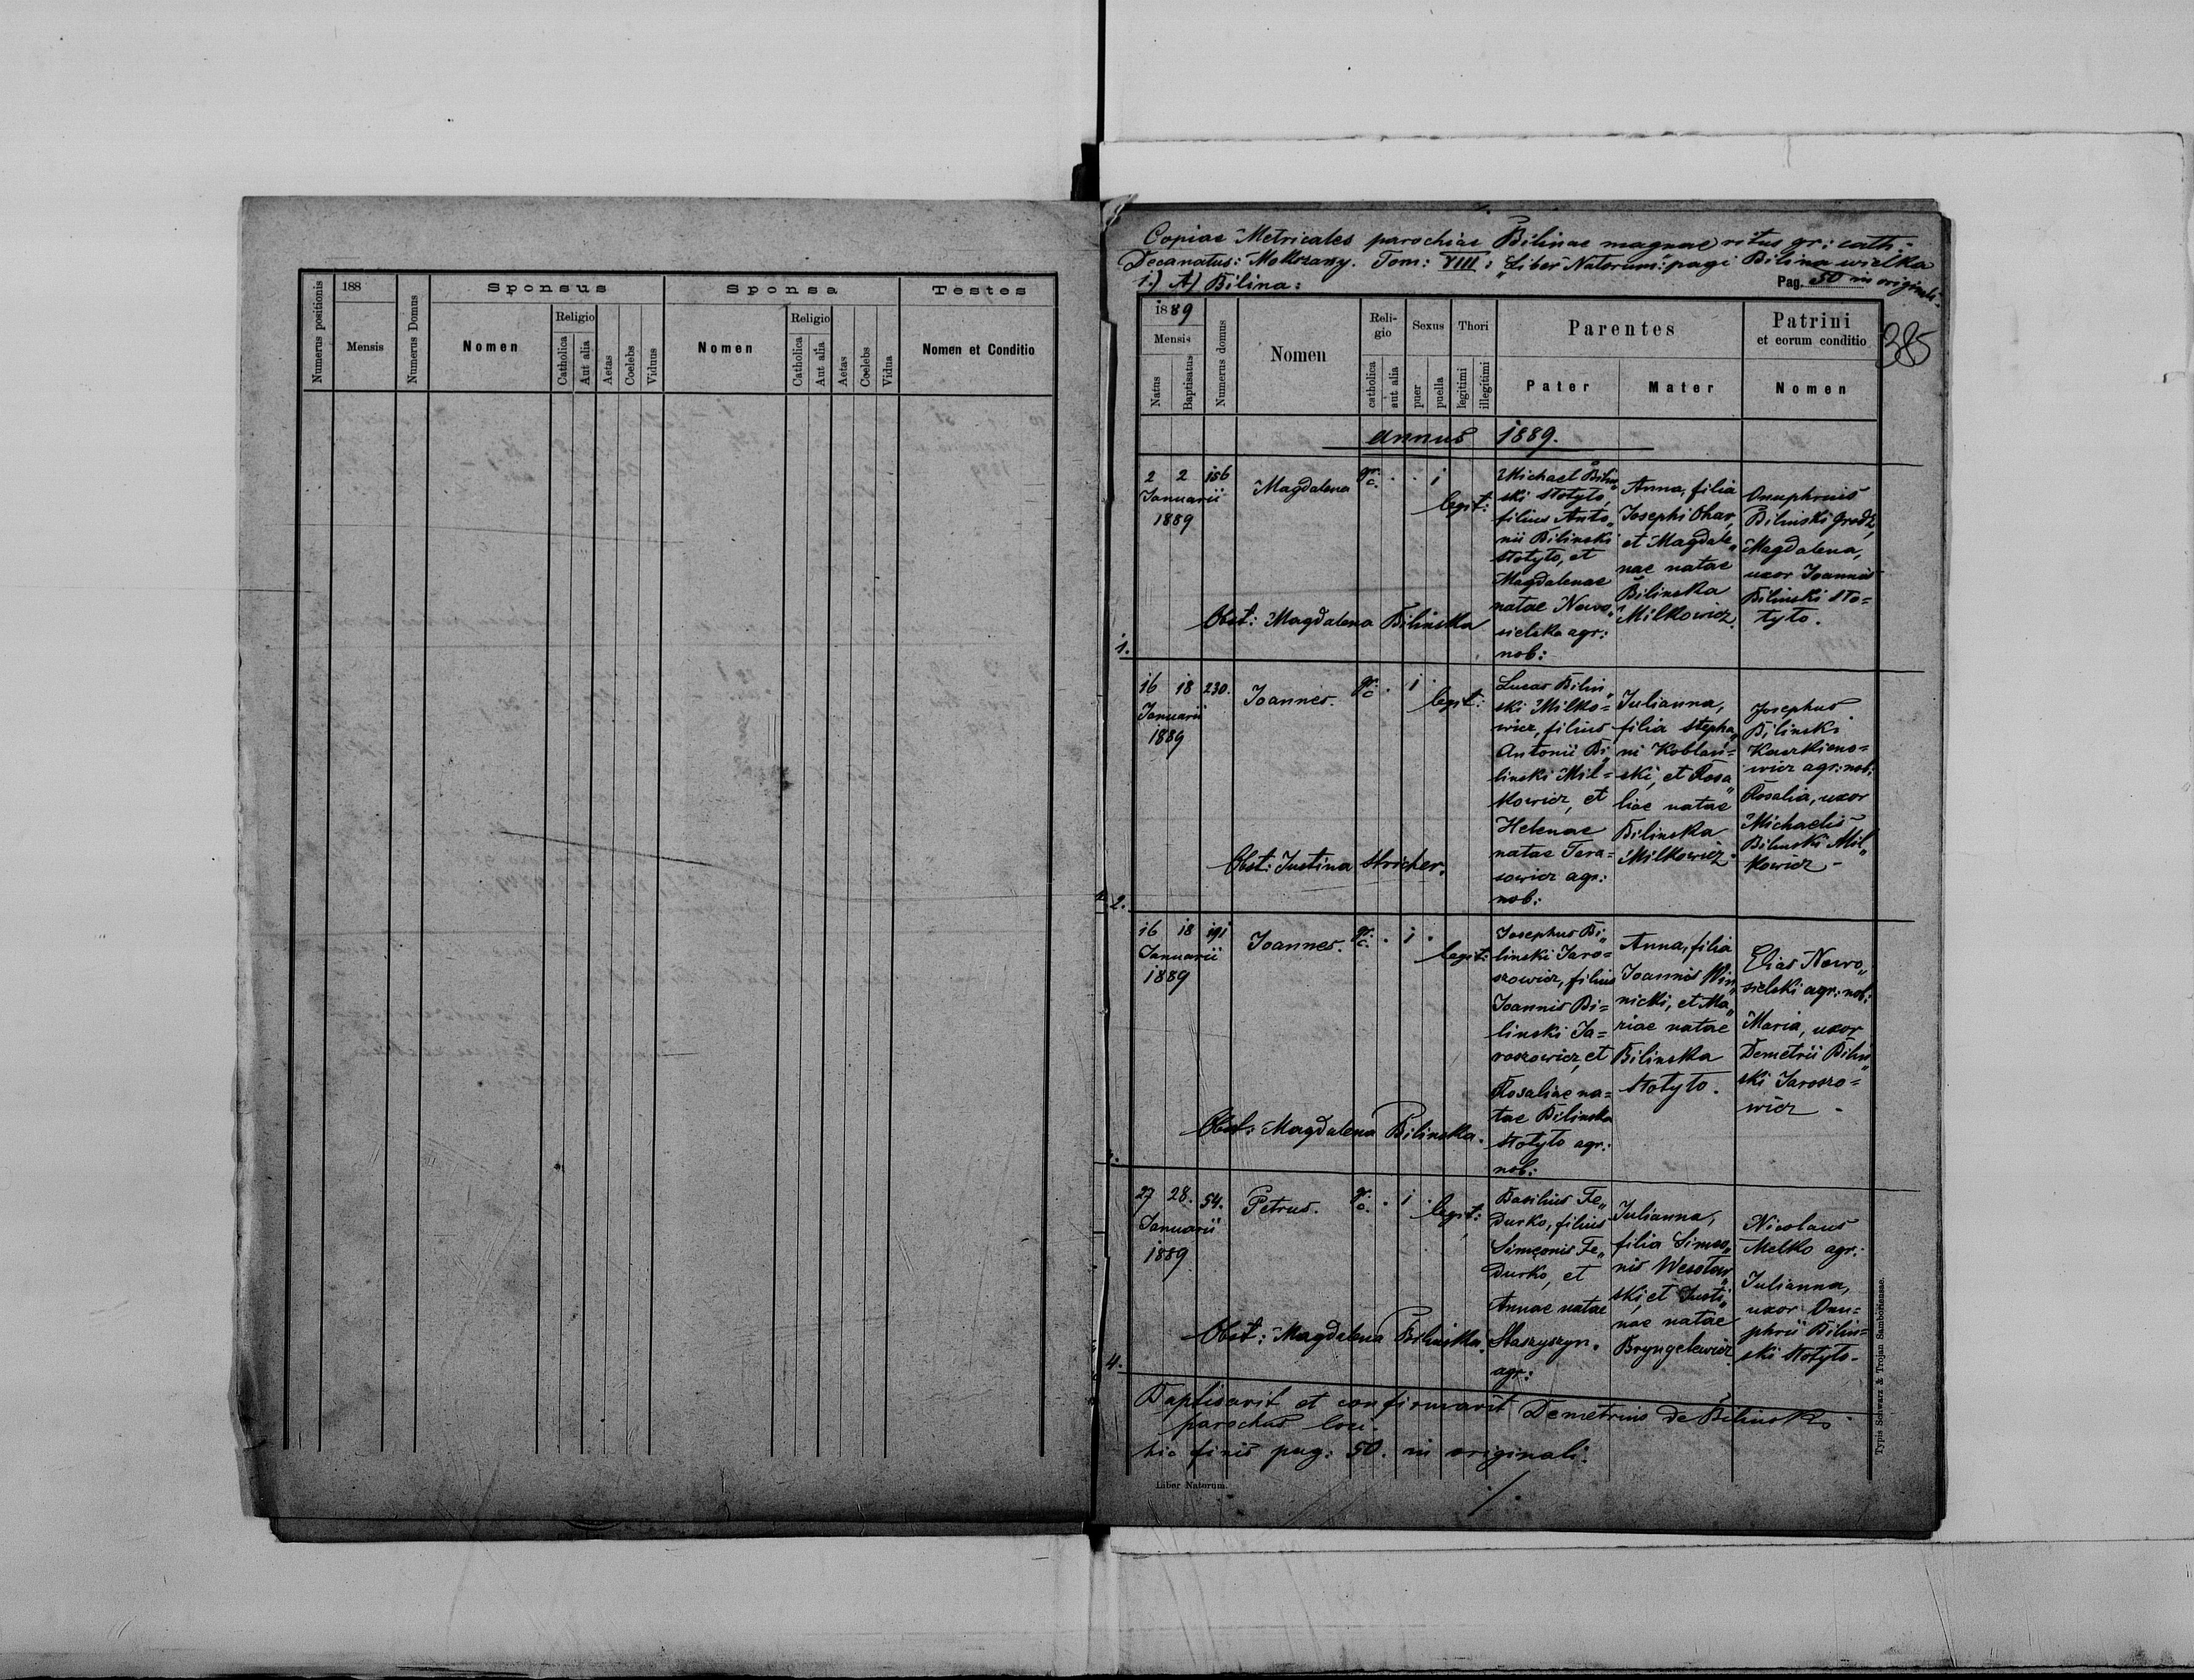 Numerus positionis
188
Mensis
Numerus Domus
Sponsus
Nomen
Religio
Catholica
Aut alia
Aetas
Coelebs
Viduus
Sponsa
Nomen
Religio
Catholica
Aut alia
Aetas
Coelebs
Vidua
Testes
Nomen et Conditio
Copiae Metricales parochiae Bilinae magnae ritus gr: cath:
Decanatus: Mokrzany. Tom: VIII: Liber Natorum: pagi Bilina wielka
1.) A) Bilina:
Pag. 50 in originali
385
1889
Mensis
Natus
Baptisatus
Numerus domus
Nomen
Reli-
gio
catholica
aut alia
Sexus
puer
puella
Thori
legitimi
illegitimi
Parentes
Pater
Mater
Patrini
et eorum conditio
Nomen
annus 1889.
1.
2 2 186
Januarii
1889
Magdalena
gr:
c.
1
legit:
Michael Bilin„
ski Stotyto,
filius Anto„
nii Bilinski
Stotyto, et
Magdalenae
natae Nowo„
sielska agr:
nob:
Anna, filia
Josephi Ohar,
et Magdale„
nae natae
Bilinska
Milkowicz.
Onuphrius
Bilinski Grodz,
Magdalena,
uxor Joannis
Bilinski Sto=
tyto.
Obst: Magdalena Bilinska
2.
16 18 230.
Januarii
1889
Joannes.
gr:
c.
1
legit:
Lucas Bilin„
ski Milko=
wicz, filius
Antonii Bi„
linski Mil=
kowicz, et
Helenae
natae Tara=
sowicz agr:
nob:
Julianna,
filia Stepha„
ni Koblań=
ski, et Rosa„
liae natae
Bilinska
Milkowicz.
Josephus
Bilinski
Kaszkieno=
wicz agr: nob:
Rosalia, uxor
Michaelis
Bilinski Mil„
kowicz -
Obst: Justina Stricher.
16 18 191
Januarii
1889
Joannes.
gr:
c.
1
legit:
Josephus Bi„
linski Jaro=
szowicz, filius
Joannis Bi=
linski Ja=
roszowicz, et
Rosaliae na=
tae Bilinska
Stotyto agr:
nob:
Anna, filia
Joannis Win„
nicki, et Ma„
riae natae
Bilinska
Stotyto.
Elias Nowo„
sielski agr: nob:
Maria, uxor
Demetrii Bilin„
ski Jaroszo=
wicz -
Obst: Magdalena Bilinska.
4.
27 28. 54.
Januarii
1889
Petrus.
gr:
c.
1
legit:
Basilius Fe„
durko, filius
Simeonis Fe„
durko, et
Annae natae
Staszyszyn.
agr:
Julianna,
filia Simeo„
nis Wesołow„
ski, et Justi„
nae natae
Bryngelewicz
Nicolaus
Melko agr:
Julianna,
uxor Onu=
phrii Bilin=
ski Stotyto-
Obst: Magdalena Bilinska.
Baptisavit et confirmavit Demetrius de Bilinski
parochus loci.
hic finis pag: 50. in originali:
Liber Natorum.
Typis Schwarz & Trojan Samboriensae.